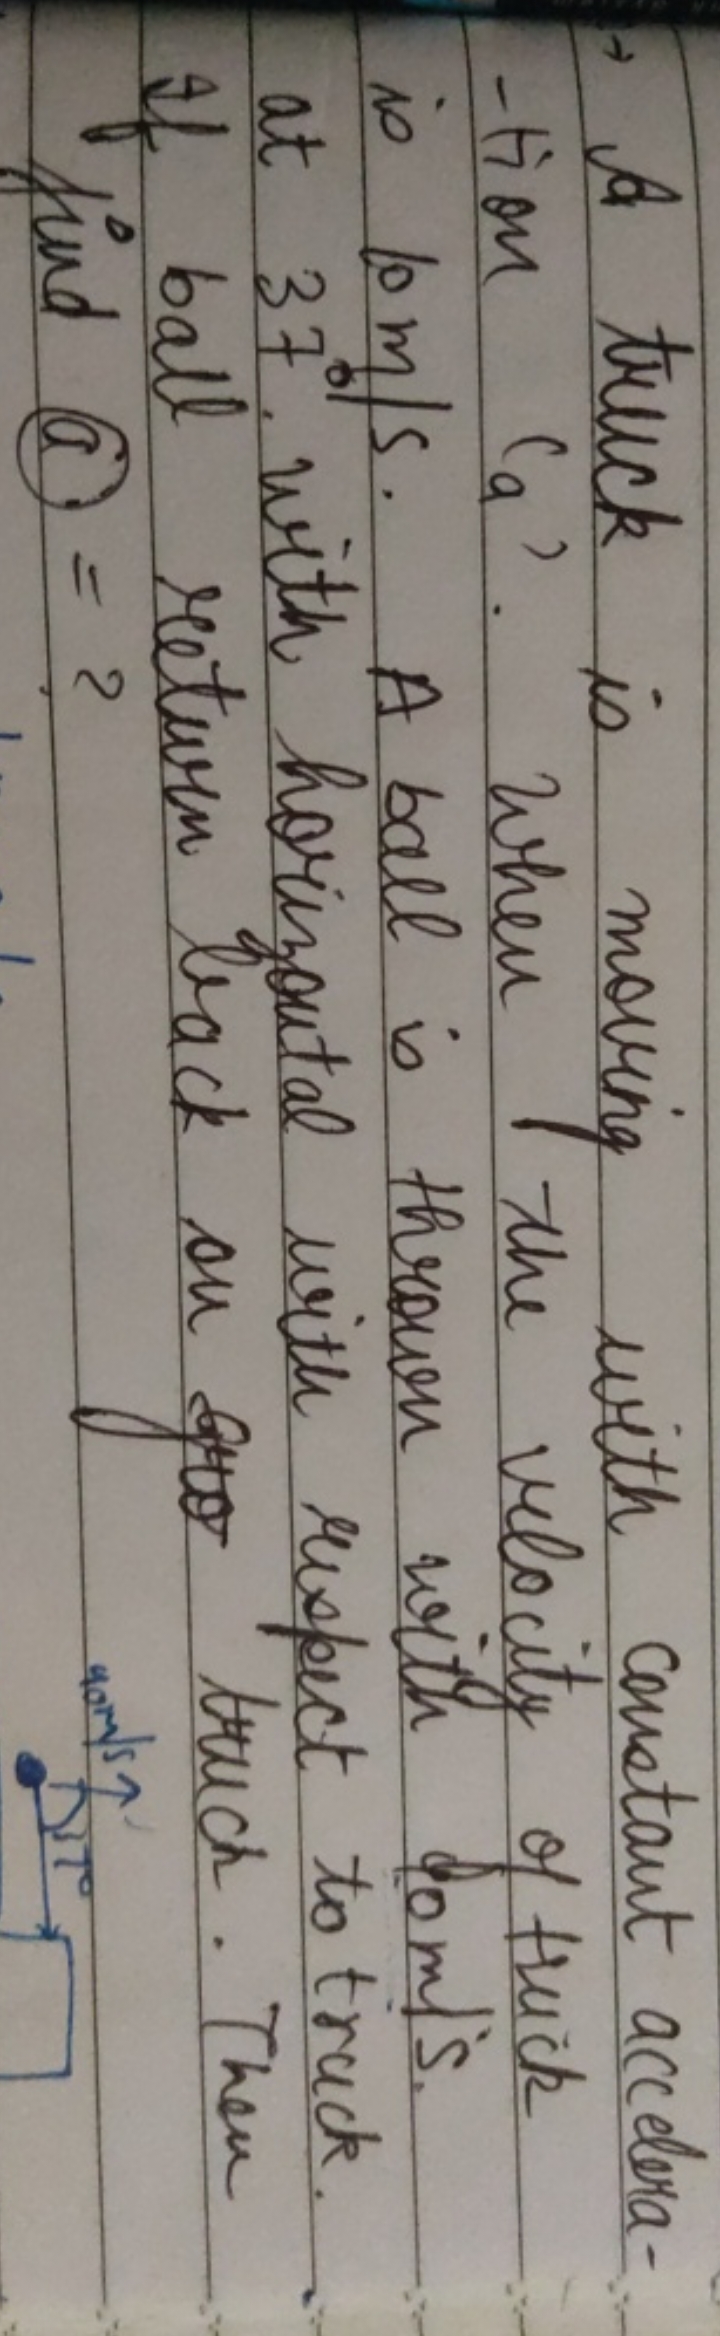 → A truck is moving with constant accelera-
-tion 'a'. When the velocity of truck
is 10m/s. A ball is thrown with 10m/s.
at 37°. with horizontal with respect to truck.
If ball return back on truck. Then
find a = ?
40m/s
37°